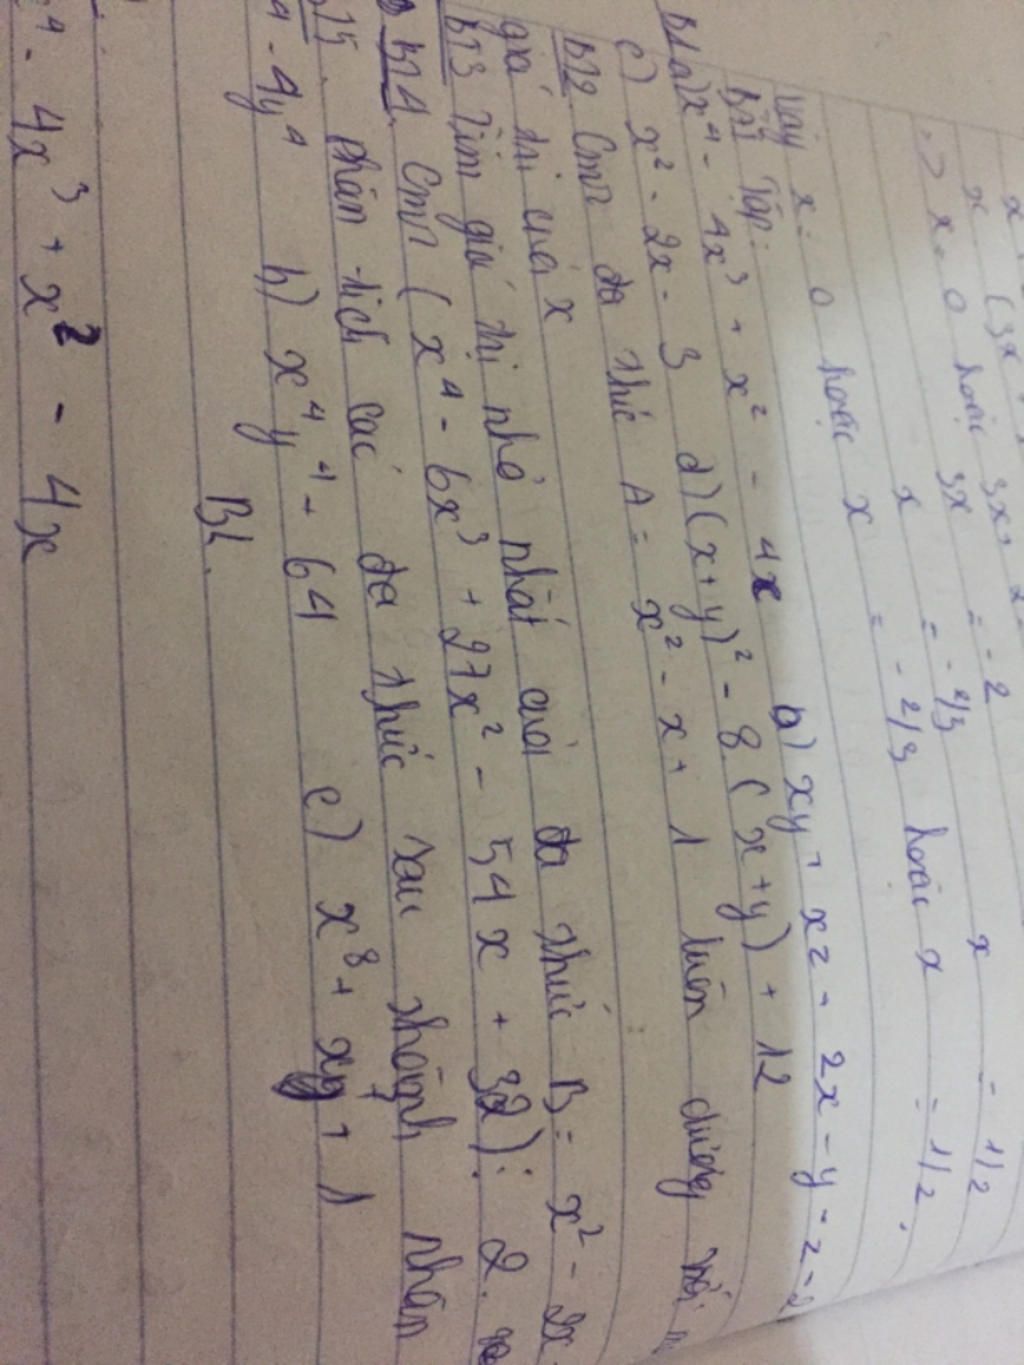 x (3x
x
=> x = 0 hoặc 3x = - 2 x = 1/2
x = - 2/3
Vậy x = 0 hoặc x = - 2/3 hoặc x = 1/2.
Bài Tập:
B1 a) x⁴ - 4x³ + x² - 4x b) xy + xz + 2x - y - z -
c) x² - 2x - 3 d) (x+y)² - 8.(x+y) + 12
BT2 Cmr đa thức A = x² - x + 1 luôn dương với
giá trị của x
BT3 Tìm giá trị nhỏ nhất của đa thức B = x² - 2x
BT4. Cmr (x⁴ - 6x³ + 27x² - 54x + 32) ⋮ 2.
BT5. Phân tích các đa thức sau thành nhân
⁴ - 4y⁴ b) x⁴y⁴ + 64 c) x⁸ + x + 1
BL.
⁴ - 4x³ + x² - 4x